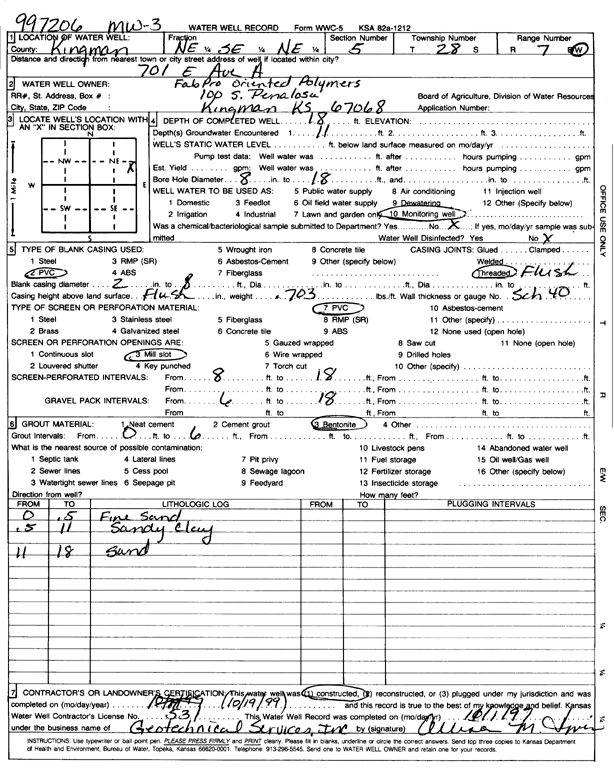 997206 MW-3 WATER WELL RECORD Form WWC-5 KSA 82a-1212
1 LOCATION OF WATER WELL: Fraction Section Number Township Number Range Number
County: Kingman NE ¼ SE ¼ NE ¼ 5 T 28 S R 7 E/W
Distance and direction from nearest town or city street address of well if located within city?
701 E Ave A
2 WATER WELL OWNER: FabPro Oriented Polymers
RR#, St. Address, Box # : 100 S. Penalosa Board of Agriculture, Division of Water Resources
City, State, ZIP Code : Kingman KS 67068 Application Number:
3 LOCATE WELL'S LOCATION WITH AN "X" IN SECTION BOX:
N
NW NE
X
W E
SW SE
S
1 Mile
4 DEPTH OF COMPLETED WELL 18 ft. ELEVATION:
Depth(s) Groundwater Encountered 1. 11 ft. 2. ft. 3. ft.
WELL'S STATIC WATER LEVEL ft. below land surface measured on mo/day/yr
Pump test data: Well water was ft. after hours pumping gpm
Est. Yield gpm: Well water was ft. after hours pumping gpm
Bore Hole Diameter 8 in. to 18 ft., and in. to ft.
WELL WATER TO BE USED AS: 5 Public water supply 8 Air conditioning 11 Injection well
1 Domestic 3 Feedlot 6 Oil field water supply 9 Dewatering 12 Other (Specify below)
2 Irrigation 4 Industrial 7 Lawn and garden only 10 Monitoring well
Was a chemical/bacteriological sample submitted to Department? Yes No X ; If yes, mo/day/yr sample was submitted
Water Well Disinfected? Yes No X
5 TYPE OF BLANK CASING USED: 5 Wrought iron 8 Concrete tile CASING JOINTS: Glued Clamped
1 Steel 3 RMP (SR) 6 Asbestos-Cement 9 Other (specify below) Welded
2 PVC 4 ABS 7 Fiberglass Threaded Flush
Blank casing diameter 2 in. to 8 ft., Dia in. to ft., Dia in. to ft.
Casing height above land surface Flush in., weight .703 lbs./ft. Wall thickness or gauge No. Sch 40
TYPE OF SCREEN OR PERFORATION MATERIAL: 7 PVC 10 Asbestos-cement
1 Steel 3 Stainless steel 5 Fiberglass 8 RMP (SR) 11 Other (specify)
2 Brass 4 Galvanized steel 6 Concrete tile 9 ABS 12 None used (open hole)
SCREEN OR PERFORATION OPENINGS ARE: 5 Gauzed wrapped 8 Saw cut 11 None (open hole)
1 Continuous slot 3 Mill slot 6 Wire wrapped 9 Drilled holes
2 Louvered shutter 4 Key punched 7 Torch cut 10 Other (specify)
SCREEN-PERFORATED INTERVALS: From 8 ft. to 18 ft., From ft. to ft.
From ft. to ft., From ft. to ft.
GRAVEL PACK INTERVALS: From 6 ft. to 18 ft., From ft. to ft.
From ft. to ft., From ft. to ft.
6 GROUT MATERIAL: 1 Neat cement 2 Cement grout 3 Bentonite 4 Other
Grout Intervals: From 0 ft. to 6 ft., From ft. to ft., From ft. to ft.
What is the nearest source of possible contamination: 10 Livestock pens 14 Abandoned water well
1 Septic tank 4 Lateral lines 7 Pit privy 11 Fuel storage 15 Oil well/Gas well
2 Sewer lines 5 Cess pool 8 Sewage lagoon 12 Fertilizer storage 16 Other (specify below)
3 Watertight sewer lines 6 Seepage pit 9 Feedyard 13 Insecticide storage
Direction from well? How many feet?
FROM TO LITHOLOGIC LOG FROM TO PLUGGING INTERVALS
0 .5 Fine Sand
.5 11 Sandy Clay
11 18 Sand
7 CONTRACTOR'S OR LANDOWNER'S CERTIFICATION: This water well was (1) constructed, (2) reconstructed, or (3) plugged under my jurisdiction and was
completed on (mo/day/year) (10/19/99) and this record is true to the best of my knowledge and belief. Kansas
Water Well Contractor's License No. 531 This Water Well Record was completed on (mo/day/yr) 10/1/97
under the business name of Geotechnical Services, Inc by (signature)
INSTRUCTIONS: Use typewriter or ball point pen. PLEASE PRESS FIRMLY and PRINT clearly. Please fill in blanks, underline or circle the correct answers. Send top three copies to Kansas Department
of Health and Environment, Bureau of Water, Topeka, Kansas 66620-0001. Telephone: 913-296-5545. Send one to WATER WELL OWNER and retain one for your records.
OFFICE USE ONLY
T
R
E/W
SEC.
¼
¼
¼